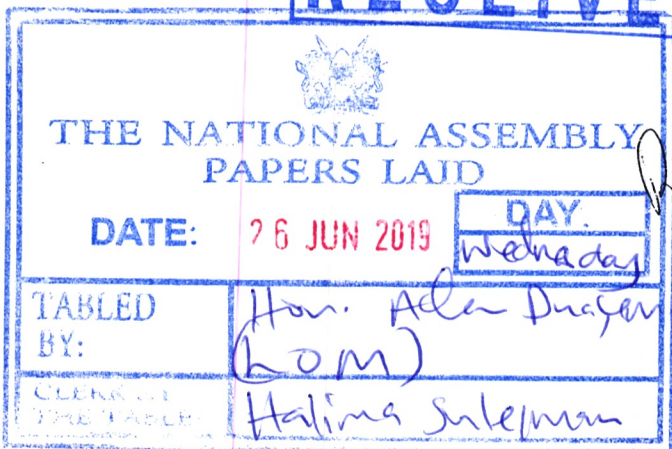 RECEIVE
THE NATIONAL ASSEMBLY
PAPERS LAID
DATE: 26 JUN 2019
DAY.
Wednesday
TABLED
BY:
Hon. Aden Duale
(LOM)
CLERK AT
THE TABLE:
Halima Suleiman